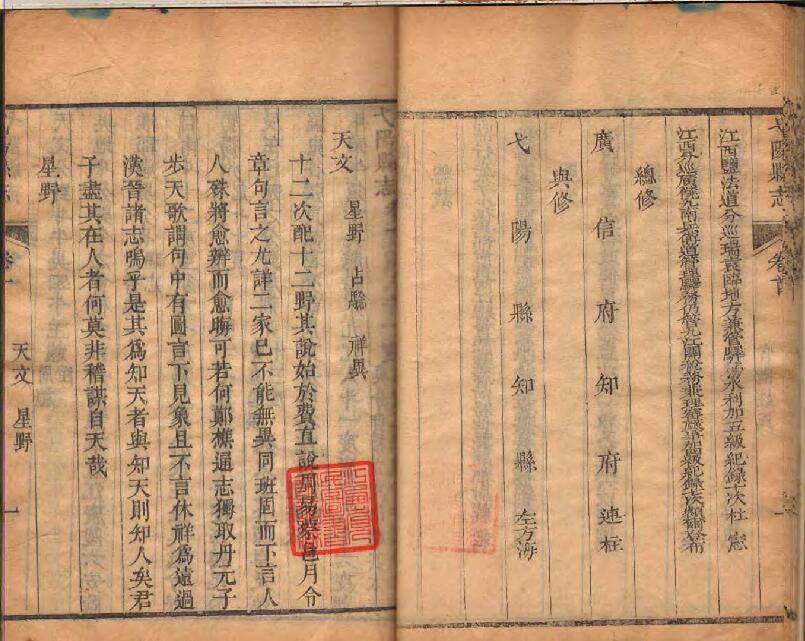 弋陽縣志
卷首
江西鹽法道分巡瑞袁臨地方兼管驛傳水利加五級紀錄十次杜 憲
江西分巡廣饒九南
總修
廣信府知府連柱
與修
弋陽縣知縣左方海
弋陽縣志
天文 星野 占驗 祥異
十二次配十二野其說始於費直說周易蔡邕月令
章句言之尤詳二家已不能無異同班固而下言人
人殊將愈辨而愈晦可若何鄭樵通志獨取丹元子
步天歌謂句中有圖言下見象且不言休祥為遠過
漢晉諸志嗚乎是其為知天者與知天則知人矣君
子盡其在人者何莫非稽謀自天哉
星野
卷一
天文 星野
一